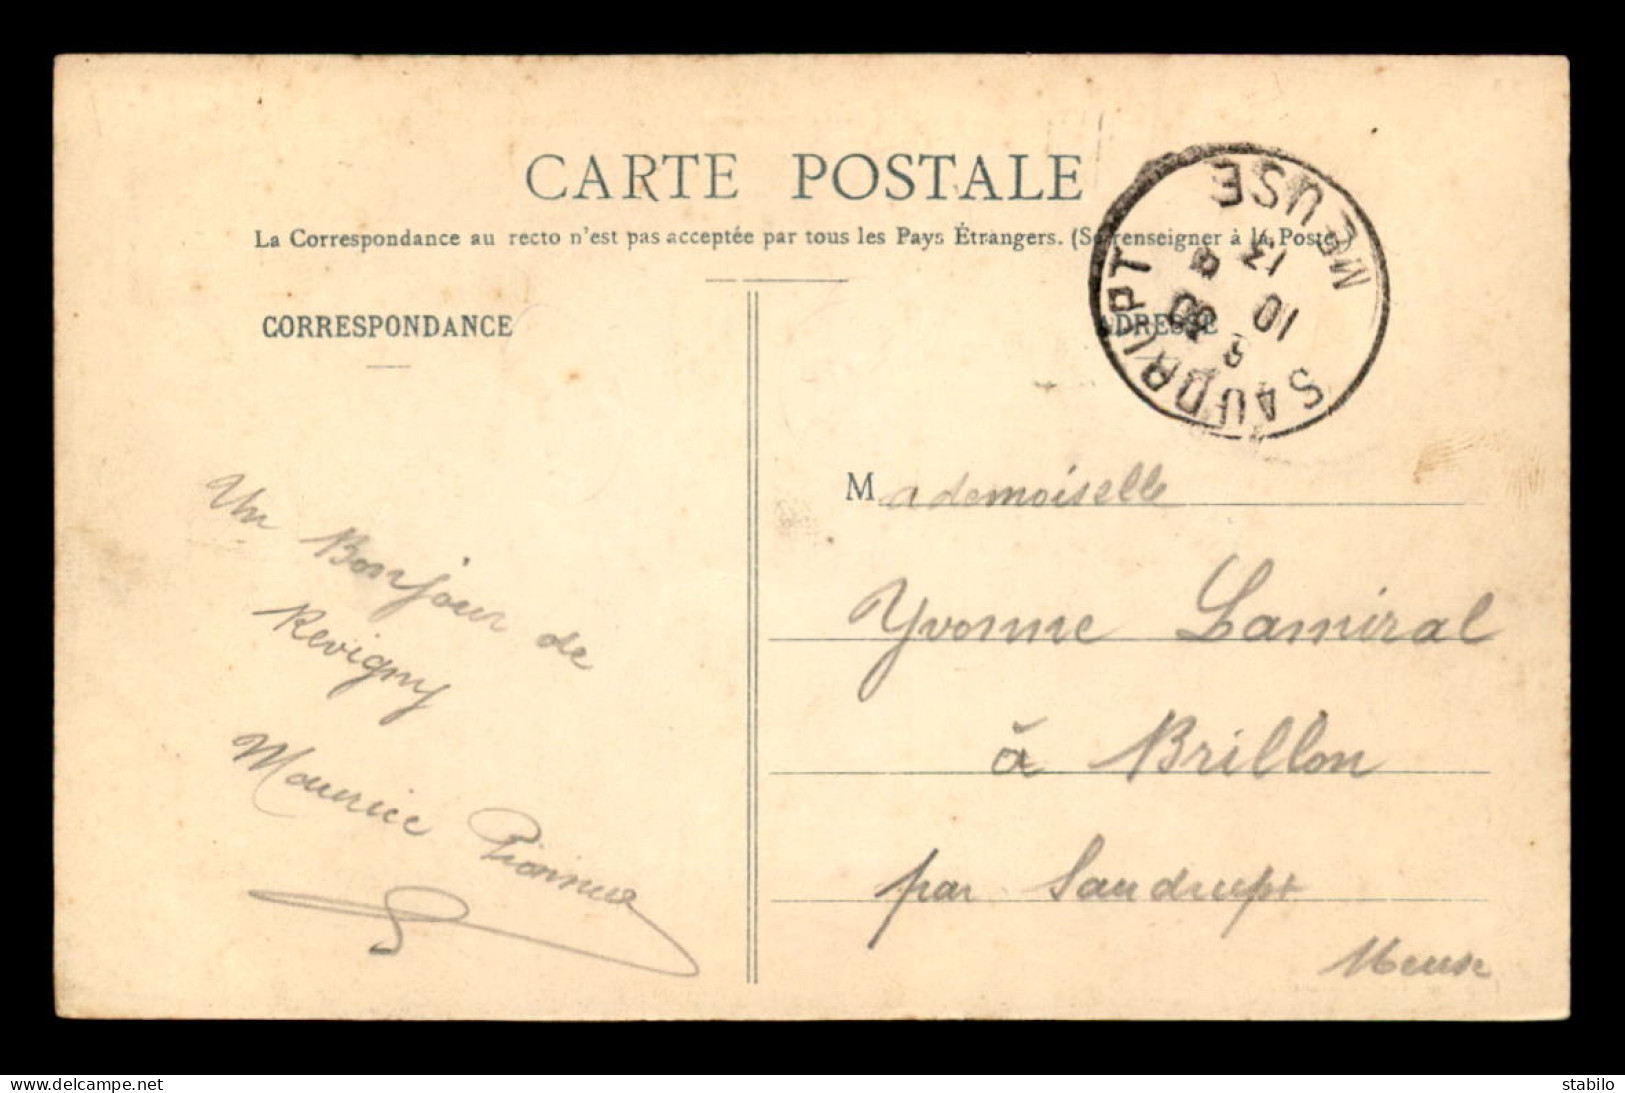 CARTE POSTALE
La Correspondance au recto n'est pas acceptée par tous les Pays Étrangers. (Se renseigner à la Poste.)
CORRESPONDANCE
ADRESSE
SAUDRUPT
MEUSE
Un Bonjour de
Revigny
Maurice
Mademoiselle
Yvonne Lamiral
à Brillon
par Saudrupt
Meuse
www.delcampe.net
stabilo